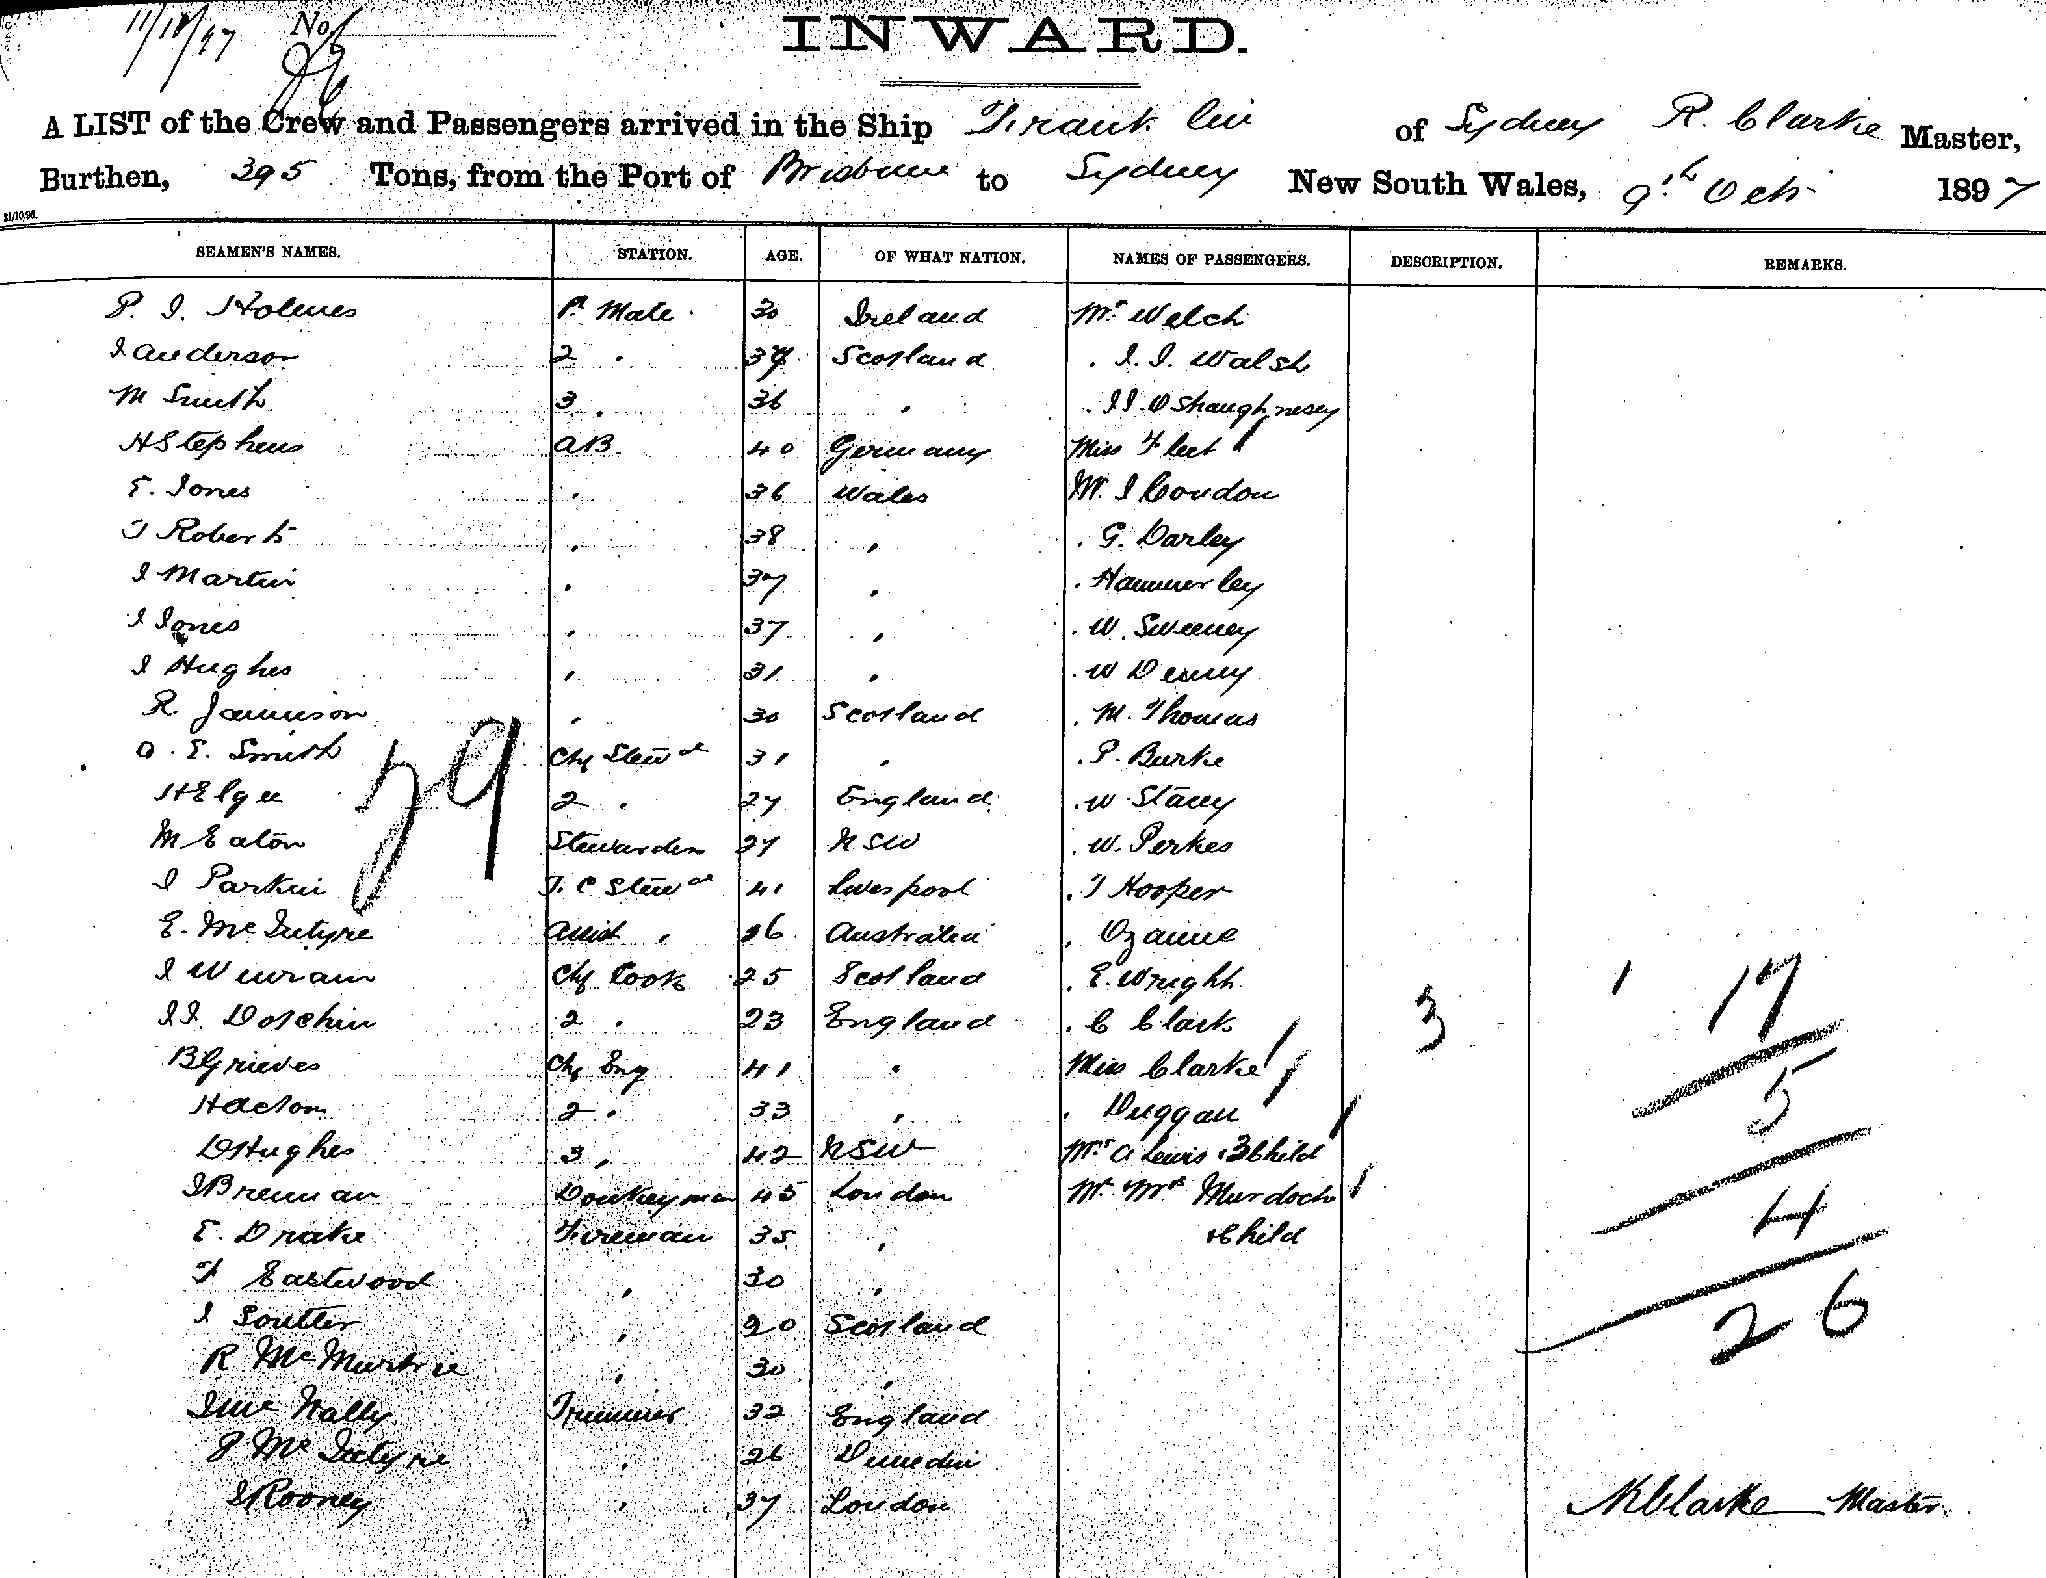 11/10/97 No.
INWARD.
A LIST of the Crew and Passengers arrived in the Ship Franklin of Sydney R. Clarke Master,
Burthen, 395 Tons, from the Port of Brisbane to Sydney New South Wales, 9th Oct 1897
21/10.96.
SEAMEN'S NAMES. STATION. AGE. OF WHAT NATION. NAMES OF PASSENGERS. DESCRIPTION. REMARKS.
P. J. Holmes Mate 30 Ireland Mr Welch
J Anderson 2 . Scotland . J. J. Walsh
M Smith 3 . 36 , . J J. OShaughnesey
H Stephens AB. 40 Germany Miss Fleet
E. Jones . 36 Wales Mr. J Condon
J Roberts , 38 , . G. Darley
J Martin . 37 , . Hammerley
J Jones , 37 , . W. Sweeney
J Hughes , 31 , . W Denny
R. Jamieson , 30 Scotland . M. Thomas
A. E. Smith Chf Stewd 31 , . P. Burke
H Elgee 2 . 27 England . W Stacey
M Eaton Stewardess 27 NSW . W. Perkes
J Parkin F. C Stewd 41 Liverpool . J Hooper
E. McIntyre Assist , 26 Australia . Ozanne
J Chf Cook 25 Scotland . E. Wright
J J. Dotchin 2 . 23 England . C Clark 3 17
B Grieves Chf Eng 41 , Miss Clarke
H Acton 2 . 33 , . Duggan 5
D Hughes 3 , 42 NSW Mrs A Lewis & 3 Child
J Brennan Donkeyman 45 London Mr Mrs Murdoch 4
E. Drake Fireman 35 , & Child
F Eastwood , 30 ,
J Soutter , 20 Scotland 26
R McMurtrie , 30 ,
J McNally Trimmer 32 England
J McIntyre , 26 Dunedin
J Rooney , 37 London
29
R Clarke Master